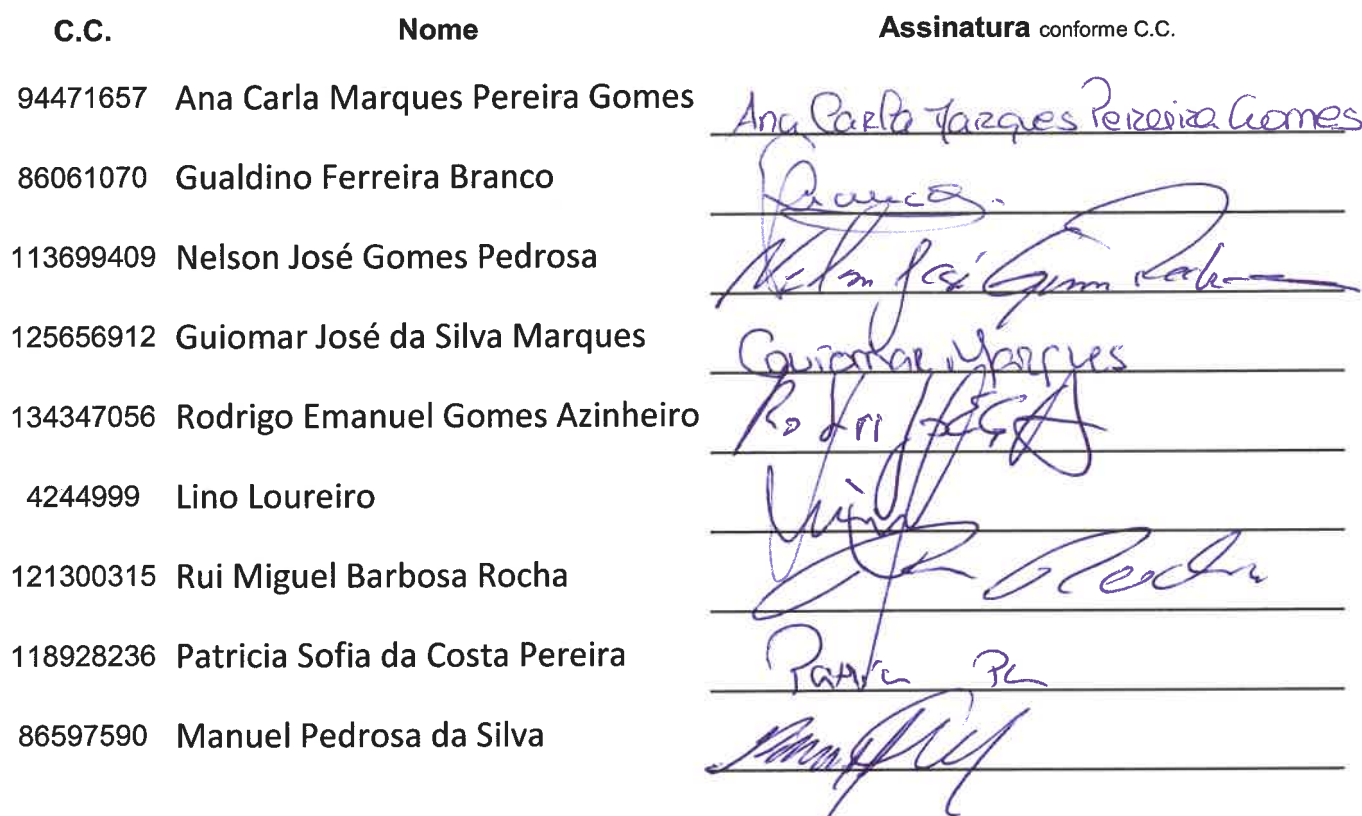 C.C. Nome Assinatura conforme C.C.
94471657 Ana Carla Marques Pereira Gomes Ana Carla Marques Pereira Gomes
86061070 Gualdino Ferreira Branco
113699409 Nelson José Gomes Pedrosa Nelson José Gomes
125656912 Guiomar José da Silva Marques Guiomar Marques
134347056 Rodrigo Emanuel Gomes Azinheiro
4244999 Lino Loureiro
121300315 Rui Miguel Barbosa Rocha Rocha
118928236 Patricia Sofia da Costa Pereira
86597590 Manuel Pedrosa da Silva